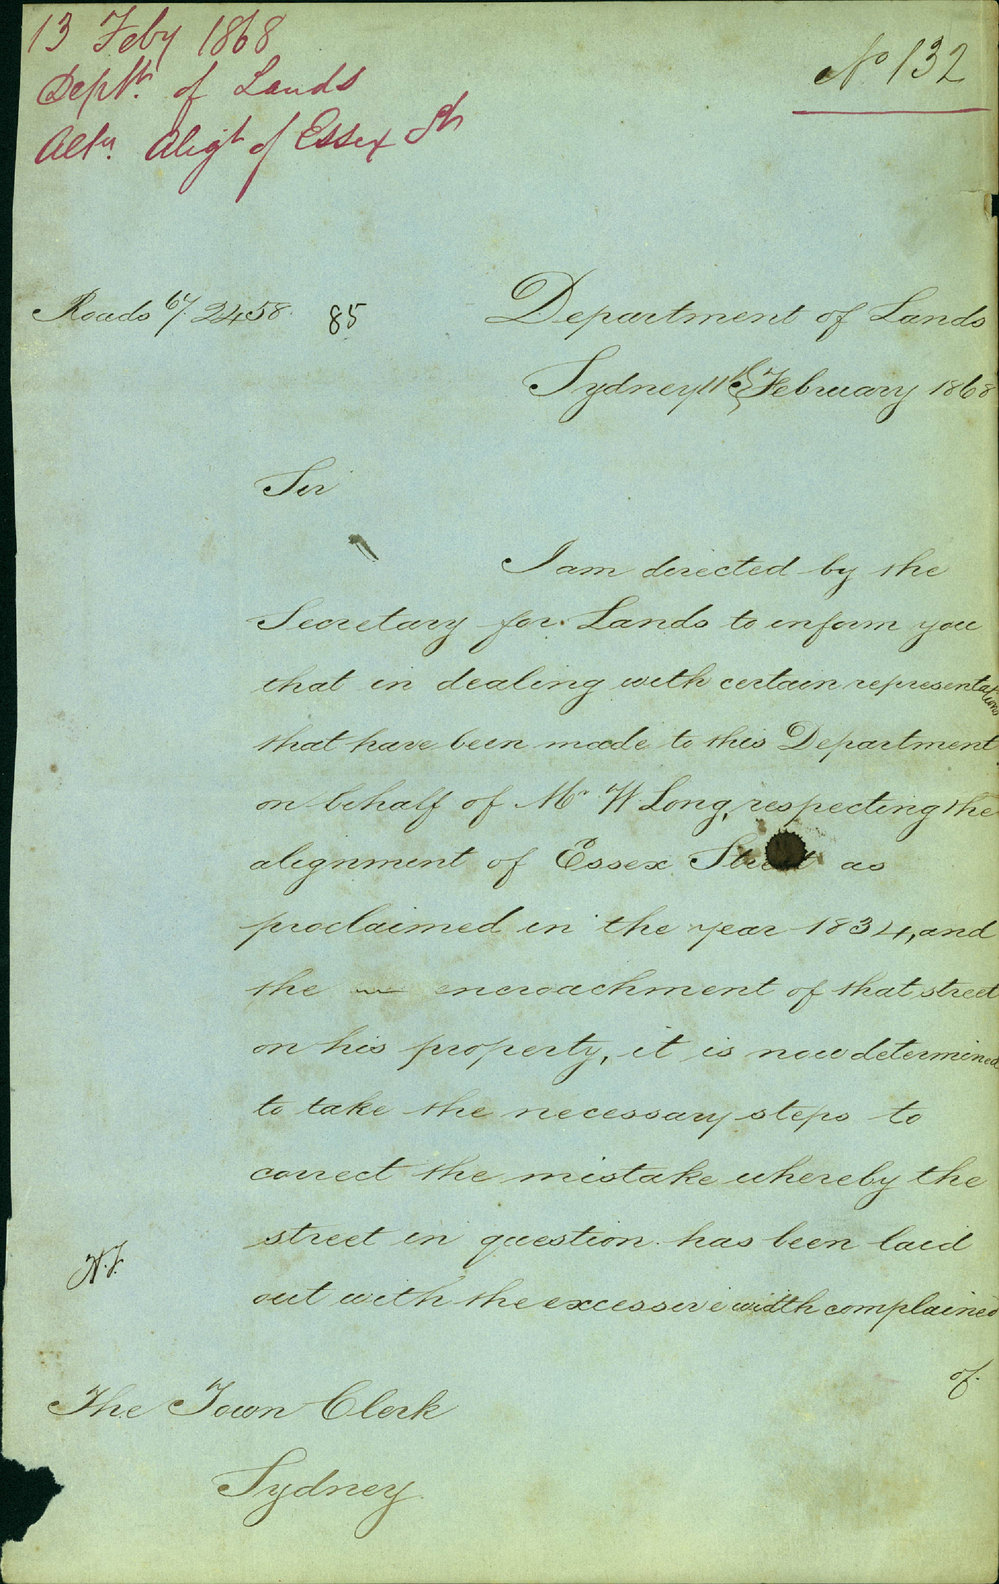 13 Feby 1868
Deptt. of Lands
Altn. Aligt of Essex St
No 132
Roads 67/2458. 85
Department of Lands
Sydney 11th February 1868
Sir
I am directed by the
Secretary for Lands to inform you
that in dealing with certain representations
that have been made to this Department
on behalf of Mr W Long, respecting the
alignment of Essex Street as
proclaimed in the year 1834, and
the encroachment of that street
on his property, it is now determined
to take the necessary steps to
correct the mistake whereby the
street in question has been laid
out with the excessive width complained
of.
The Town Clerk
Sydney